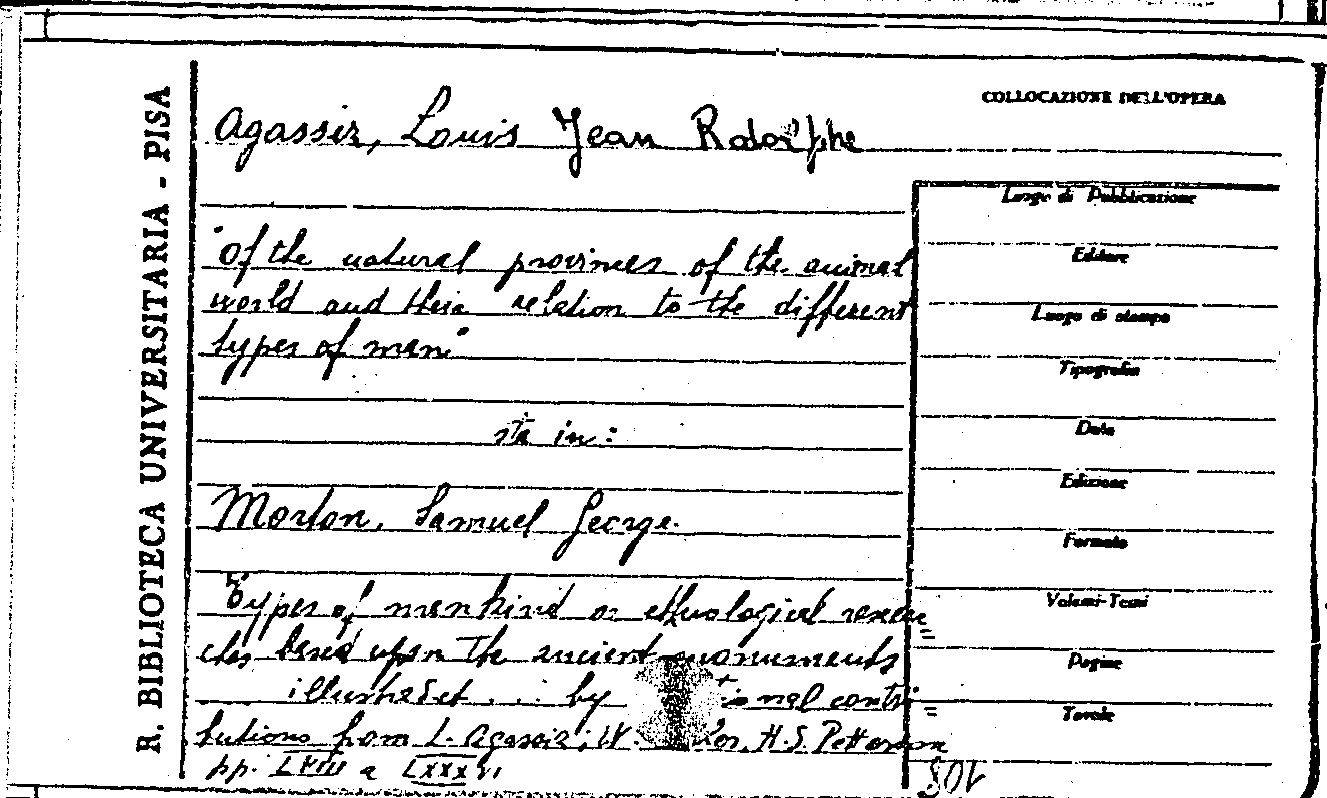 R. BIBLIOTECA UNIVERSITARIA - PISA
COLLOCAZIONE DELL'OPERA
Agassiz, Louis Jean Rodolphe
"Of the natural provinces of the animal
world and their relation to the different
types of men"
sta in:
Morton, Samuel George.
Types of menkind or ethnological resear=
ches based upon the ancient monuments
illustrated ... by contri=
butions from L. Agassiz, W. H.S. Patterson
pp. LVIII a LXXXVI
Luogo di Pubblicazione
Editore
Luogo di stampa
Tipografia
Data
Edizione
Formato
Volumi-Tomi
Pagine
Tavole